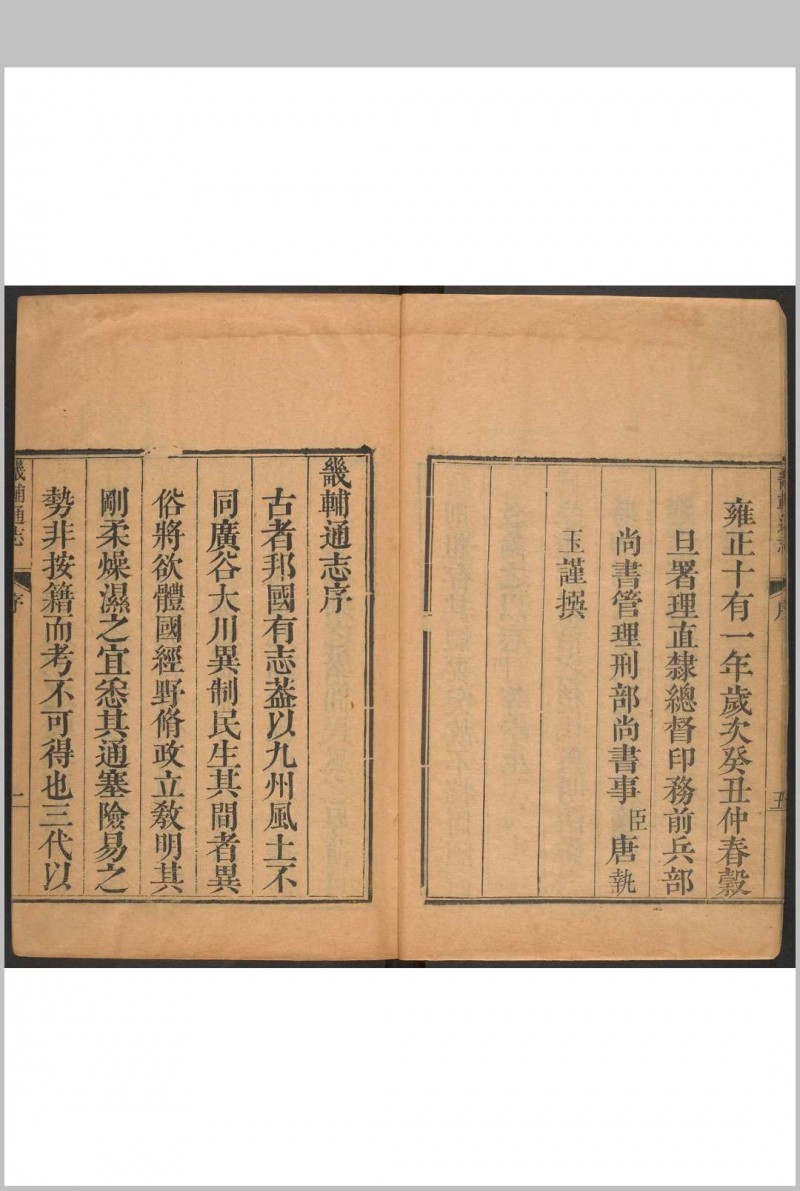 雍正十有一年歲次癸丑仲春穀
旦署理直隸總督印務前兵部
尚書管理刑部尚書事臣唐執
玉謹撰
畿輔通志序
古者邦國有志葢以九州風土不
同廣谷大川異制民生其間者異
俗將欲體國經野脩政立敎明其
剛柔燥濕之宜悉其通塞險易之
勢非按籍而考不可得也三代以
畿輔通志
序
一